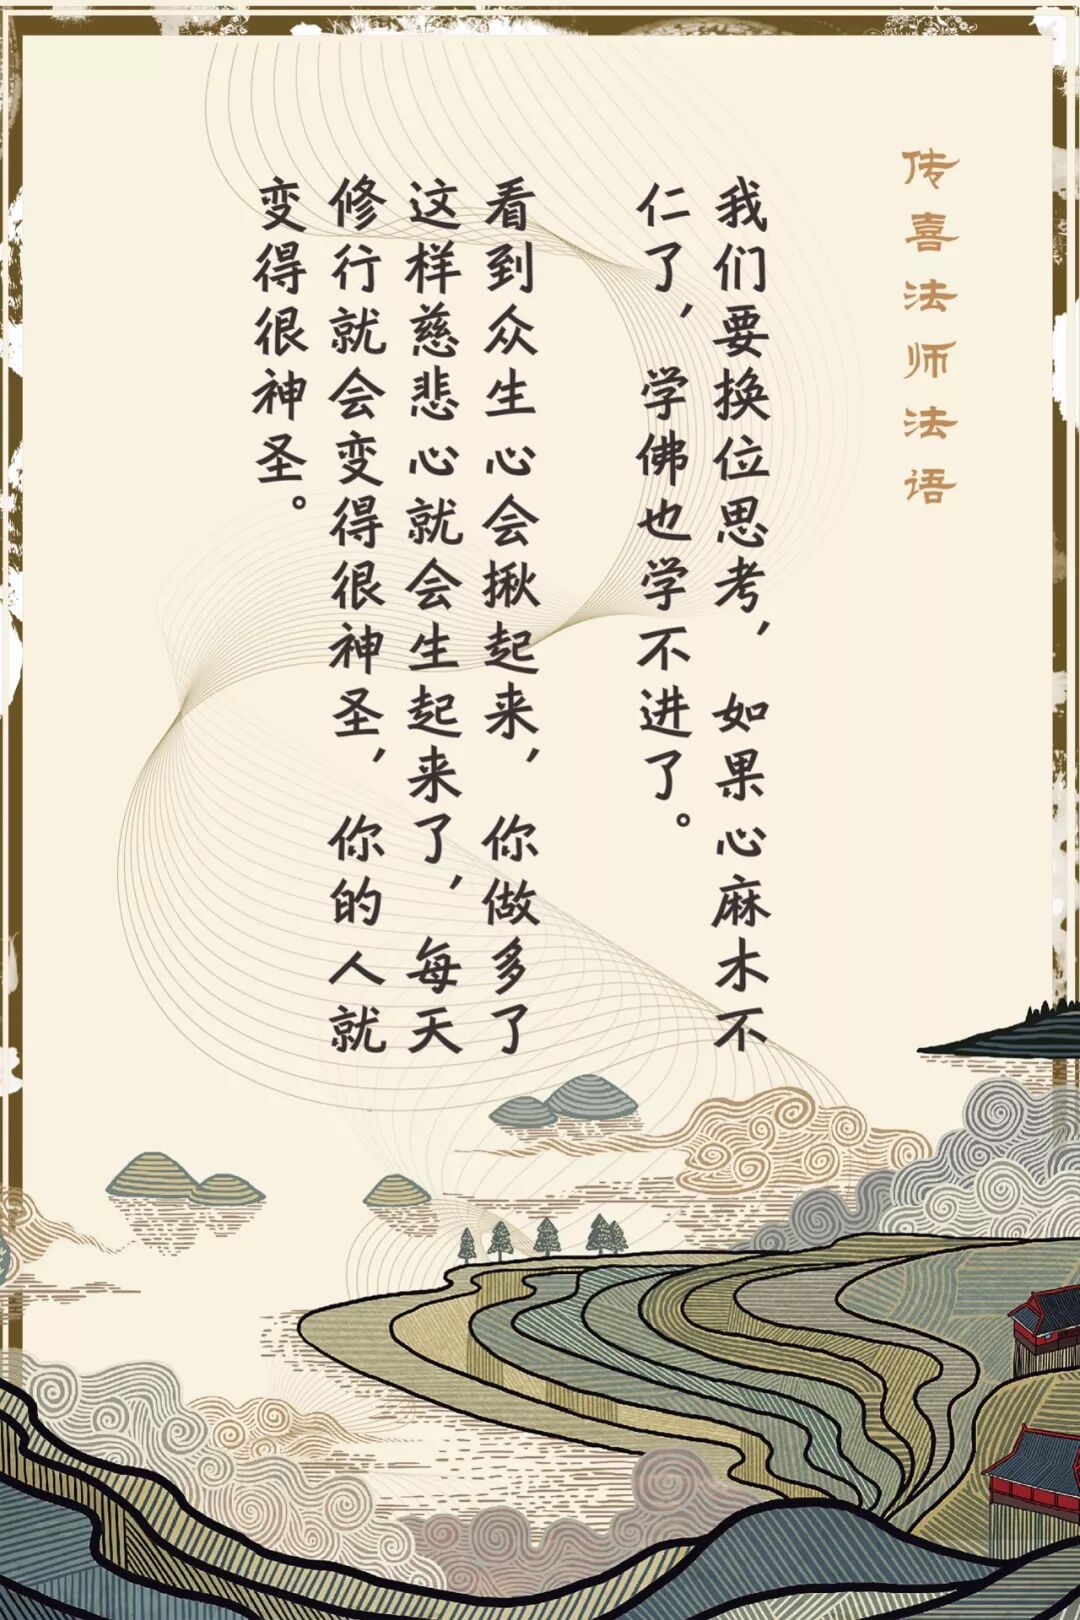 传喜法师法语
我们要换位思考，如果心麻木不
仁了，学佛也学不进了。
看到众生心会揪起来，你做多了
这样慈悲心就会生起来了，每天
修行就会变得很神圣，你的人就
变得很神圣。